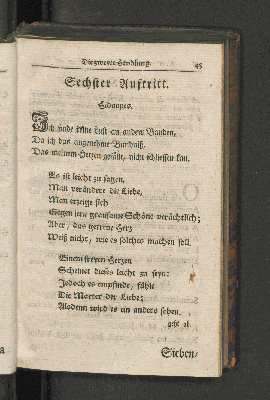 Die zweyte Handlung. 45
Sechster Auftritt.
Hidaspes.
Ich finde keine Lust an andern Banden,
Da ich das angenehme Bündniß,
Das meinem Herzen gefällt, nicht schliessen kan.
Es ist leicht zu sagen,
Man verändere die Liebe,
Man erzeige sich
Gegen jene grausame Schöne verächtlich;
Aber, das getreue Herz
Weiß nicht, wie es solches machen soll.
Einem freyen Herzen
Scheinet dieses leicht zu seyn:
Jedoch es empfinde, fühle
Die Marter der Liebe;
Alsdenn wird es ein anders sehen.
geht ab.
Sieben-